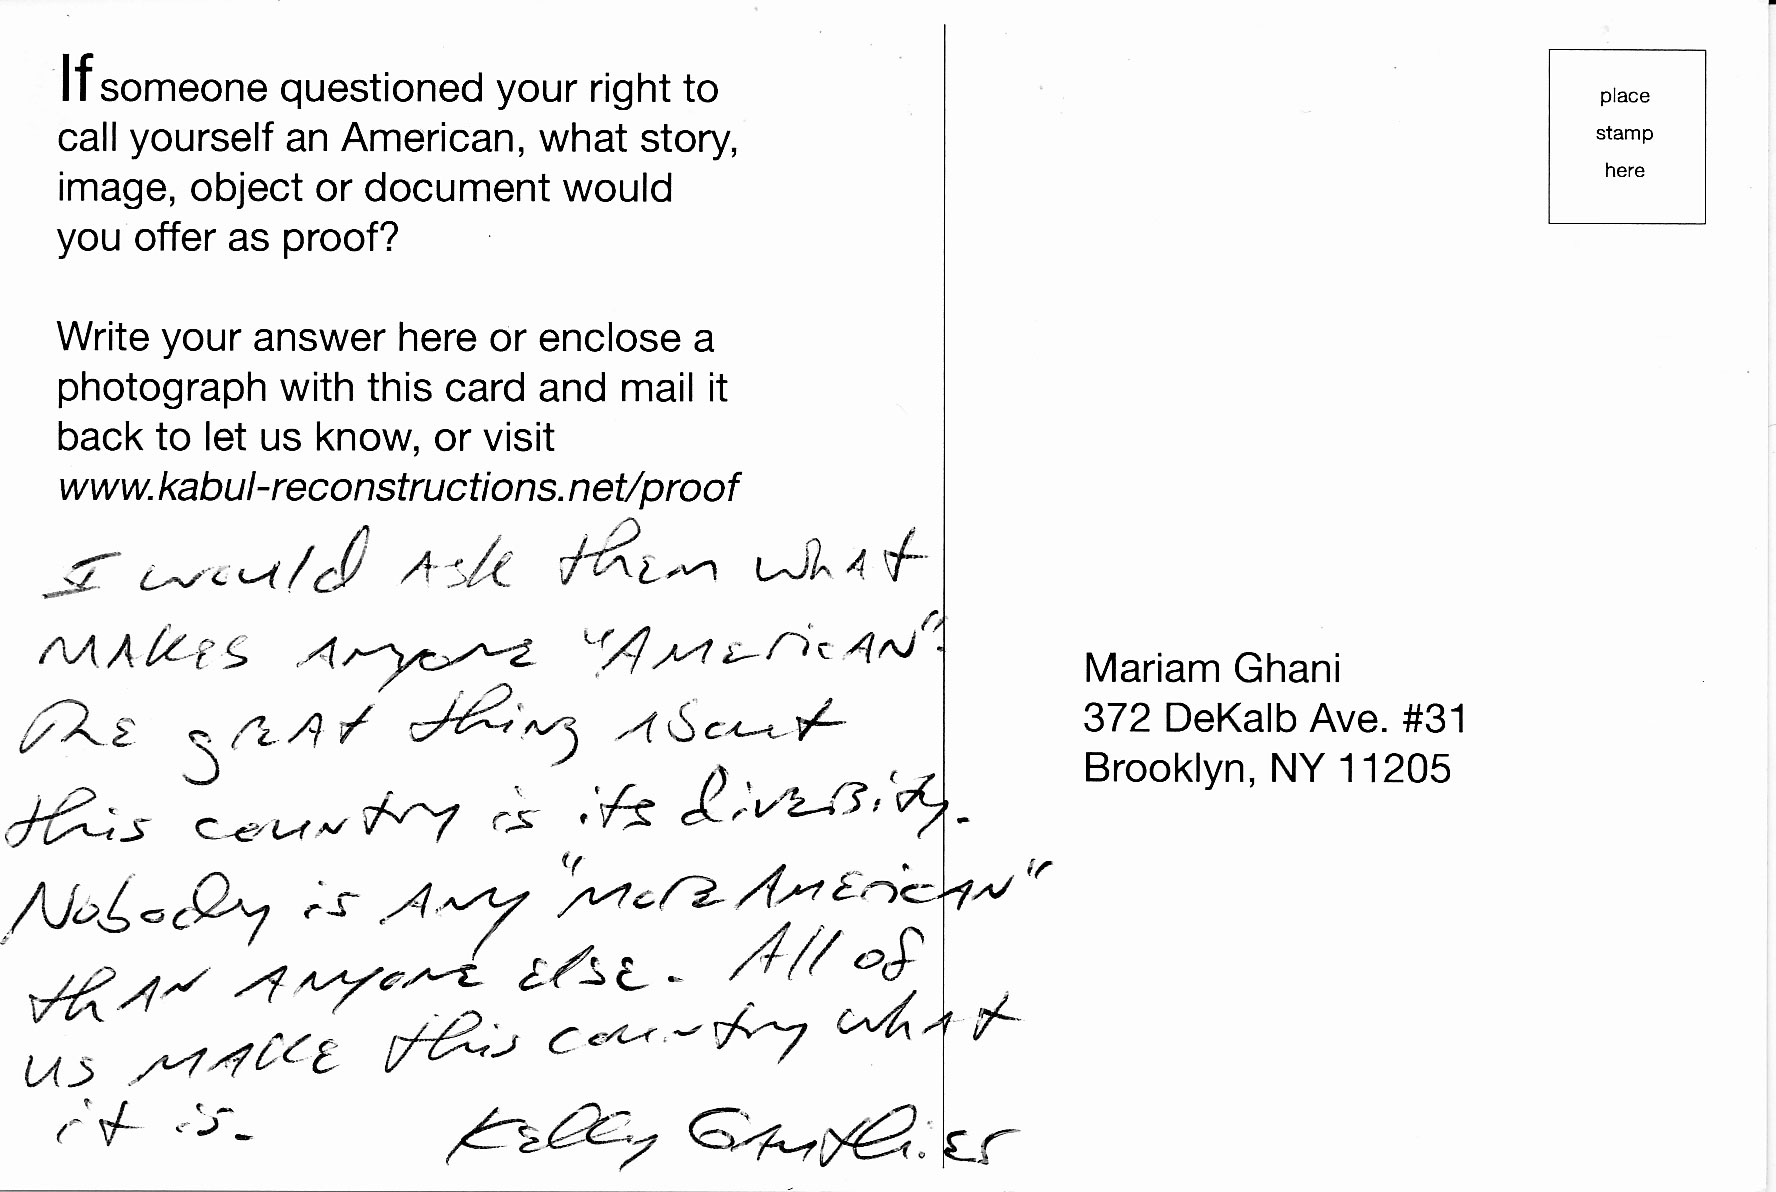 If someone questioned your right to
call yourself an American, what story,
image, object or document would
you offer as proof?
Write your answer here or enclose a
photograph with this card and mail it
back to let us know, or visit
www.kabul-reconstructions.net/proof
I would ask them what
makes anyone "American".
The great thing about
this country is its diversity.
Nobody is any "more American"
than anyone else. All of
us make this country what
it is. Kelly Gauthier
place
stamp
here
Mariam Ghani
372 DeKalb Ave. #31
Brooklyn, NY 11205